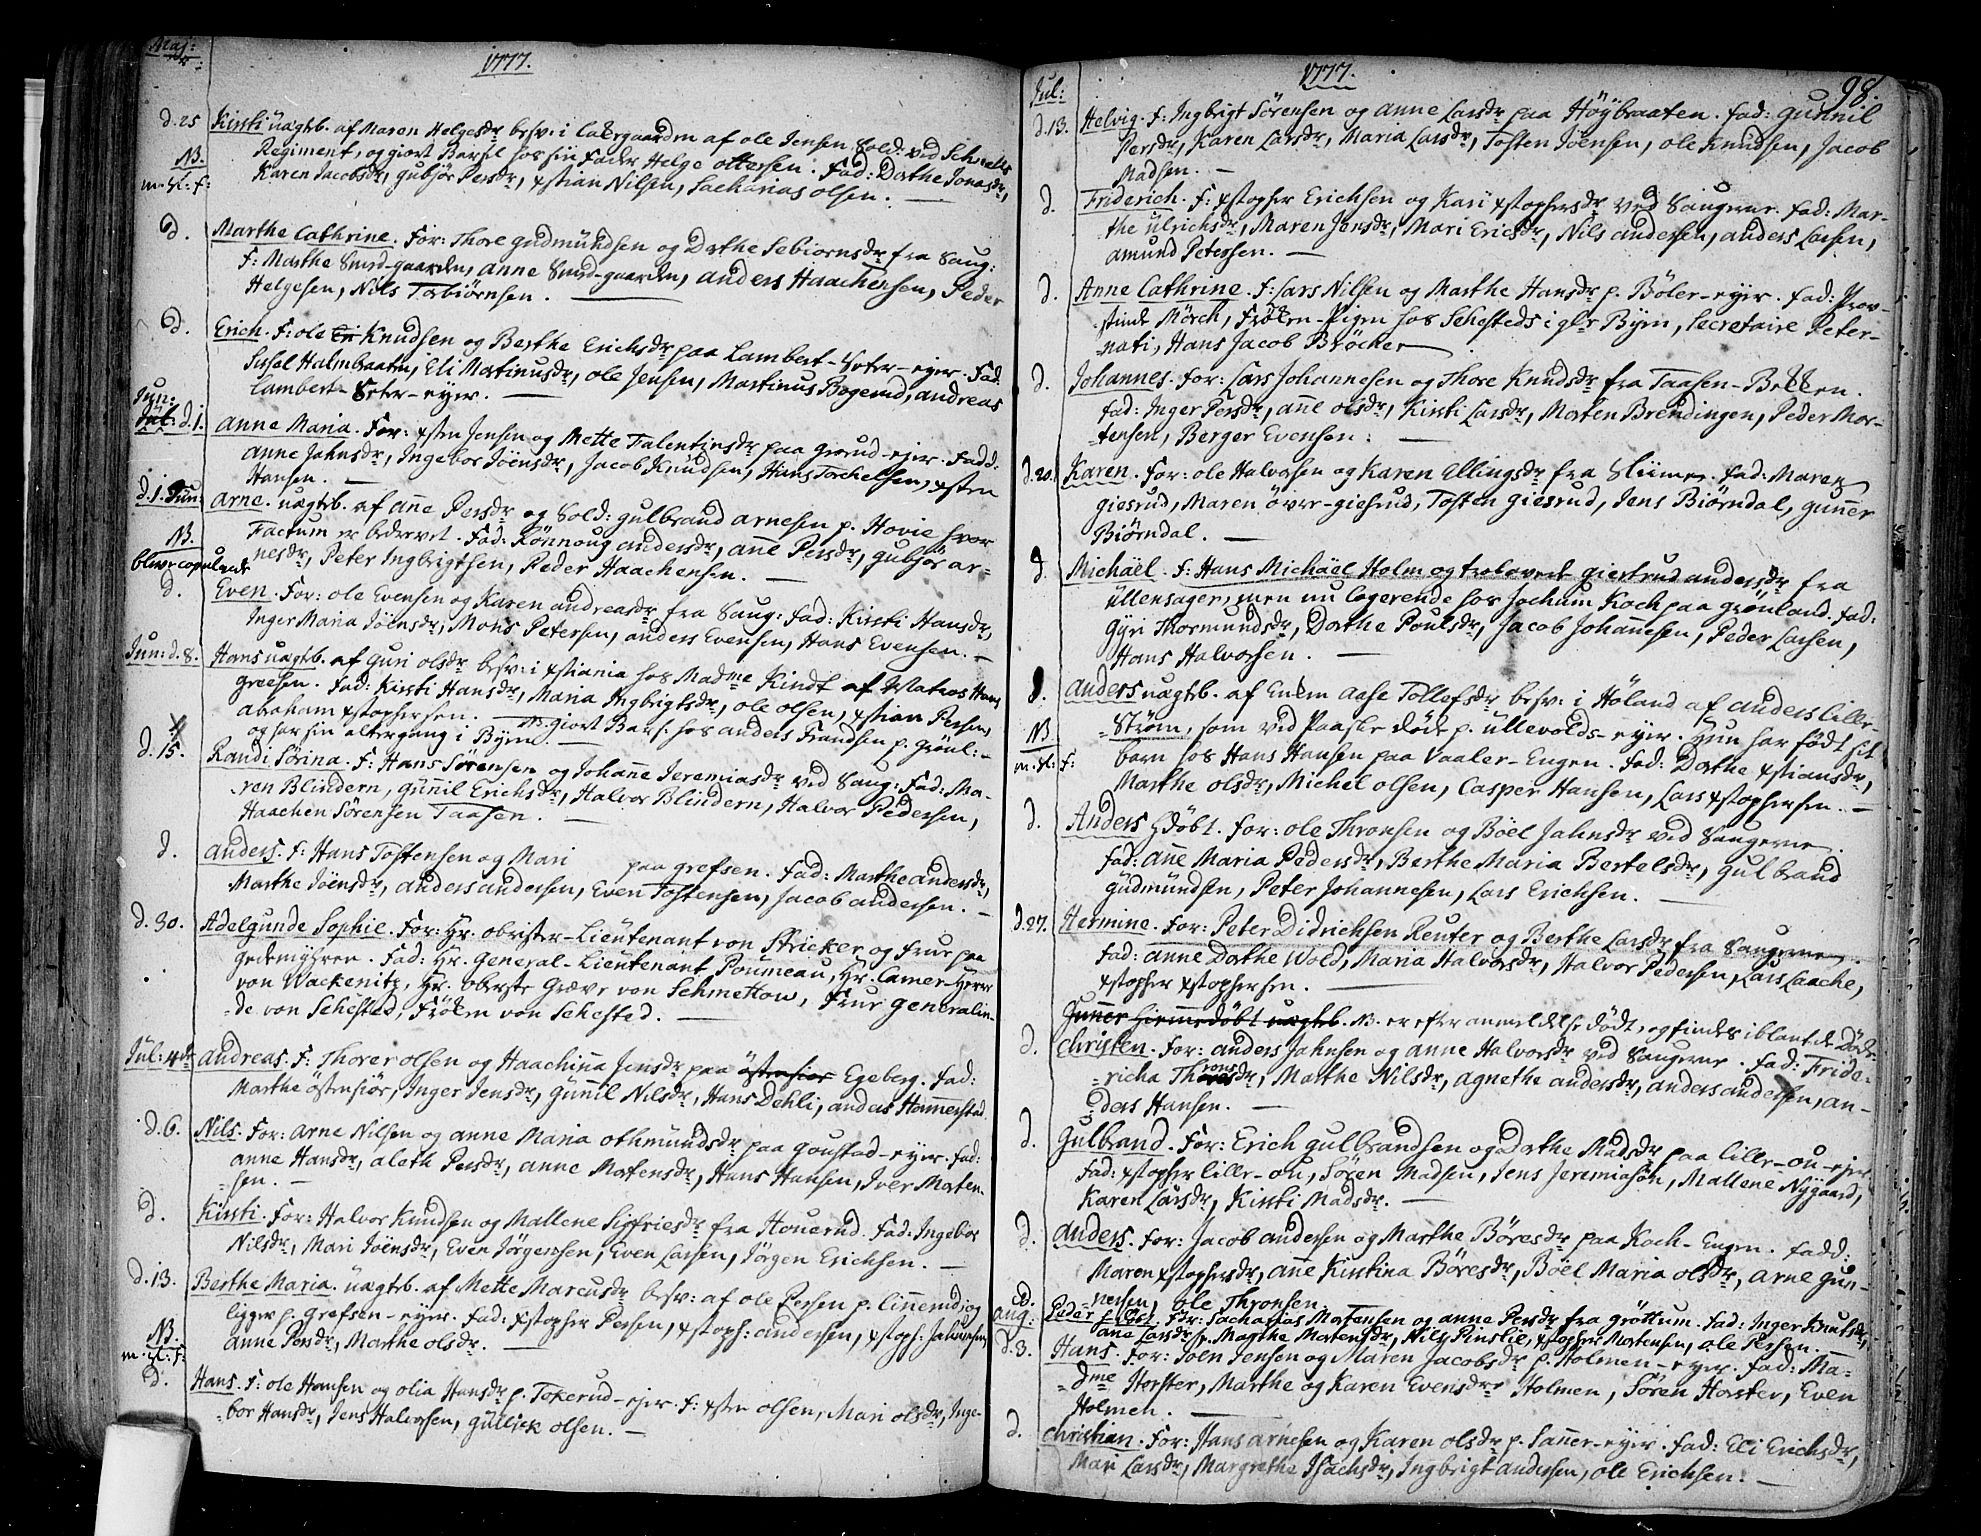 Maj:
1777.
d.25 Kirsti uægtb. af Maren Helgesdr besv: i Lakrgaarden af ole Jensen Sold: ved Schmetts
NB. Regiment, og giort Barsel hos sin Fader Helge ottersen. Fad: Dorthe Jonasdr,
m. st: f: Karen Jacobsdr, gubjør Persdr, xstian Nilsen, Sacharias olsen.
d. Marthe Cathrine. For: Thore gudmündsen og Dorthe Sebiornsdr fra Saug:
F: Marthe Smed-gaarden, anne Smed-gaarden, anders Haachensen, Peder
Helgesen, Nils Torbiørnsen.
d. Erich. F: ole Knudsen og Berthe Erichsdr paa Lambert-Seter-eyer. Fad:
Sissel Halmbraaten, Eli Mortinusdr, ole Jensen, Martinus Bogerud, andreas
Lambert-Seter-eyer.
Jun:
Jul: d.1. Anne Maria. For: xsten Jensen og Mette Falentinsdr paa Grorud-eyer. Fadd:
Anne Jahnsdr, Ingebor Jöensdr, Jacob Knudsen, Hans Torchelsen, xsten
Hansen.
d.1. Jun: Arne. uægtb. af Anne Persdr og Sold: gulbrand arnesen p. Hovie hvor
NB. Factum er bedrevet. Fad: Rønnoug andersdr, anne Persdr, gubjør ar-
bleve copulerede nesdr, Peter Ingbrigtsen, Peder Haachensen.
d. Even. For: ole Evensen og Karen andreasdr fra Saug: Fad: Kirsti Hansdr,
Inger Maria Jöensdr, Mons Petersen, anders Evensen, Hans Evensen.
Jun: d.8. Hans uægtb. af Guri olsdr besv: i xstiania hos Madme Kindt af Matros Hans
greesen. Fad: Kirsti Hansdr, Maria Ingbrigtsdr, ole olsen, xstian Persen,
abraham xstophersen. NB. giort Bars: hos anders Frandsen p. Grönl:
og har sin altergang i Byen.
d.15. Randi Sørina. F: Hans Sørensen og Johanne Jeremiasdr ved Saug: Fad: Ma-
ren Blindern, Gunnil Erichsdr, Halvor Blindern, Halvor Pedersen,
Haachen Sörensen Taasen.
d. anders. F: Hans Tostensen og Mari paa grefsen. Fad: Marthe andersdr,
Marthe Jöensdr, anders andersen, Even Tostensen, Jacob andersen.
d.30. Adelgunde Sophie. For: Hr. obrister-Lieutenant von Stricker og Frue paa
gedemyhren. Fad: Hr. General-Lieutenant Poumeau, Hr. Camer-Herr
von Wackenitz, Hr. oberste Greve von Schmettow, Frue generalin-
de von Sehested, Frökn von Sehested.
Jul: 4de andreas. F: Thorer olsen og Haachinna Jensdr paa östensiør Egeberg. Fad:
Marthe östensiør, Inger Jensdr, Gunnil Nilsdr, Hans Dehli, anders Hammerstad.
d.6. Nils. For: Arne Nilsen og anne Maria othmündsdr paa Goustad-eyer. Fad:
anne Hansdr, aleth Persdr, anne Mortensdr, Hans Hansen, Iver Morten-
sen.
d. Kirsti. For: Halvor Knudsen og Mallene Sigfriesdr fra Houerud. Fad: Ingebor
Nilsdr, Mari Jöensdr, Even Jörgensen, Even Larsen, Jörgen Erichsen.
d.13. Berthe Maria. uægtb. af Mette Marcusdr besv: af ole Persen p. linnerud, og
ligger p. Grefsen-eyer. Fad: xstopher Persen, xstoph: andersen, xstoph: Jahansen,
NB. anne Persdr, Marthe olsdr.
m. st: f:
d. Hans. F: ole Hansen og olia Hansdr p. Tokerud-eyer. F: xsten olsen, Mari olsdr, Inge-
bor Hansdr, Jens Halvorsen, Gullick olsen.
1777.
98.
Jul:
d.13. Helvig. F: Ingbrigt Sörensen og anne Larsdr paa Höybraaten. Fad: gunnil
Persdr, Karen Larsdr, Maria Larsdr, Tosten Jöensen, ole Knudsen, Jacob
Madsen.
d. Friderich. F: xstopher Erichsen og Kari xstophersdr ved Saugerne. Fad: Mar-
the ulrichsdr, Maren Jensdr, Mari Ericsdr, Nils andersen, anders Larsen,
amund Petersen.
d. Anne Cathrine. F: Lars Nilsen og Marthe Hansdr p. Böler-eyer. Fad: Prov-
stinde Mörch, Frökn-Pigen hos Sehesteds i gl: Byen, Secretaire Peter-
nati, Hans Jacob Bröcher
d. Johannes. For: Lars Johannesen og Thore Knudsdr fra Taasen-Bekken.
Fad: Inger Persdr, anne olsdr, Kirsti Larsdr, Morten Brendingen, Peder Mor-
tensen, Berger Evensen:
d.20. Karen. For: ole Halvorsen og Karen Ellingsdr fra Sliimer. Fad: Maren
giesrud, Maren över-giesrud, Tosten Giesrud, Jens Biörndal, gunner
Biörndal.
d. Michaël. F: Hans Michaël Holm og trolovede giertrud andersdr fra
üllensager, men nu logerende hos Jochum Koch paa grønland. Fad:
Gyri Thormundsdr, Dorthe Poulsdr, Jacob Johannesen, Peder Larsen,
Hans Halvorsen.
d. anders uægtb. af Enken Aase Tollofsdr besv: i Höland af anders Lille-
NB. Strøm, som ved Paaske døde p. ullevolds-eyer. Hun har födt sit
m. st: f: barn hos Hans Hansen paa Vaaler-Engen. Fad: Dorthe xstiansdr,
Marthe olsdr, Michel olsen, Casper Hansen, Lars xstophersen.
d. Anders Hdöbt. For: ole Thronsen og Böel Jahnsdr ved Saugerne.
Fad: Anne Maria Pedersdr, Berthe Maria Bertelsdr, Gulbrand
Gudmündsen, Peter Johannesen, Lars Erichsen.
d.27. Hermine. For: Peter Didrichsen Reuter og Berthe Larsdr fra Saugerne.
Fad: anne Dorthe Wold, Maria Halvorsdr, Halvor Pedersen, Lars Laache,
xstopher xstophersen.
Gunner hiemmedöbt uægtb. NB. er efter anmeldelse dödt, og findes iblant de Döde
d. Christen. For: anders Jahnsen og anne Halvorsdr ved Saugerne. Fad: Fride-
richa Thronsdr, Marthe Nilsdr, agnethe andersdr, anders andersen, an-
ders Hansen.
d. Gulbrand. For: Erich gulbrandsen og Dorthe Madsdr paa Lille-ou-eyer
Fad: xstopher Lille-ou, Sören Madsen, Jens Jeremiasøn, Mallene Nygaard,
Karen Larsdr, Kirsti Madsdr.
d. Anders. For: Jacob andersen og Marthe Böresdr paa Koch-Engen. Fadd:
Maren xstophersdr, anne Kirstina Böresdr, Böel Maria olsdr, arne Gun-
nersen, ole Thronsen
d. Peder Hdöbt. For: Sacharias Mortensen og anne Persdr fra grøttum. Fad: Inger Knutsdr,
aug: ane Larsdr, Magthe Mortensdr, Nils Pinslie, xstopher Mortensen, ole Persen.
d.3. Hans. For: Joen Jensen og Maren Jacobsdr p. Holmen-eyer. Fad: Ma-
dme Horster, Marthe og Karen Evensdr Holmen, Sören Horster, Even
Holmen.
d. Christian. For: Hans Arnesen og Karen olsdr p. Sanner-eyer. Fad: Eli Erichsdr,
Mari Larsdr, Margrethe Isachsdr, Ingbrigt andersen, ole Erichsen.